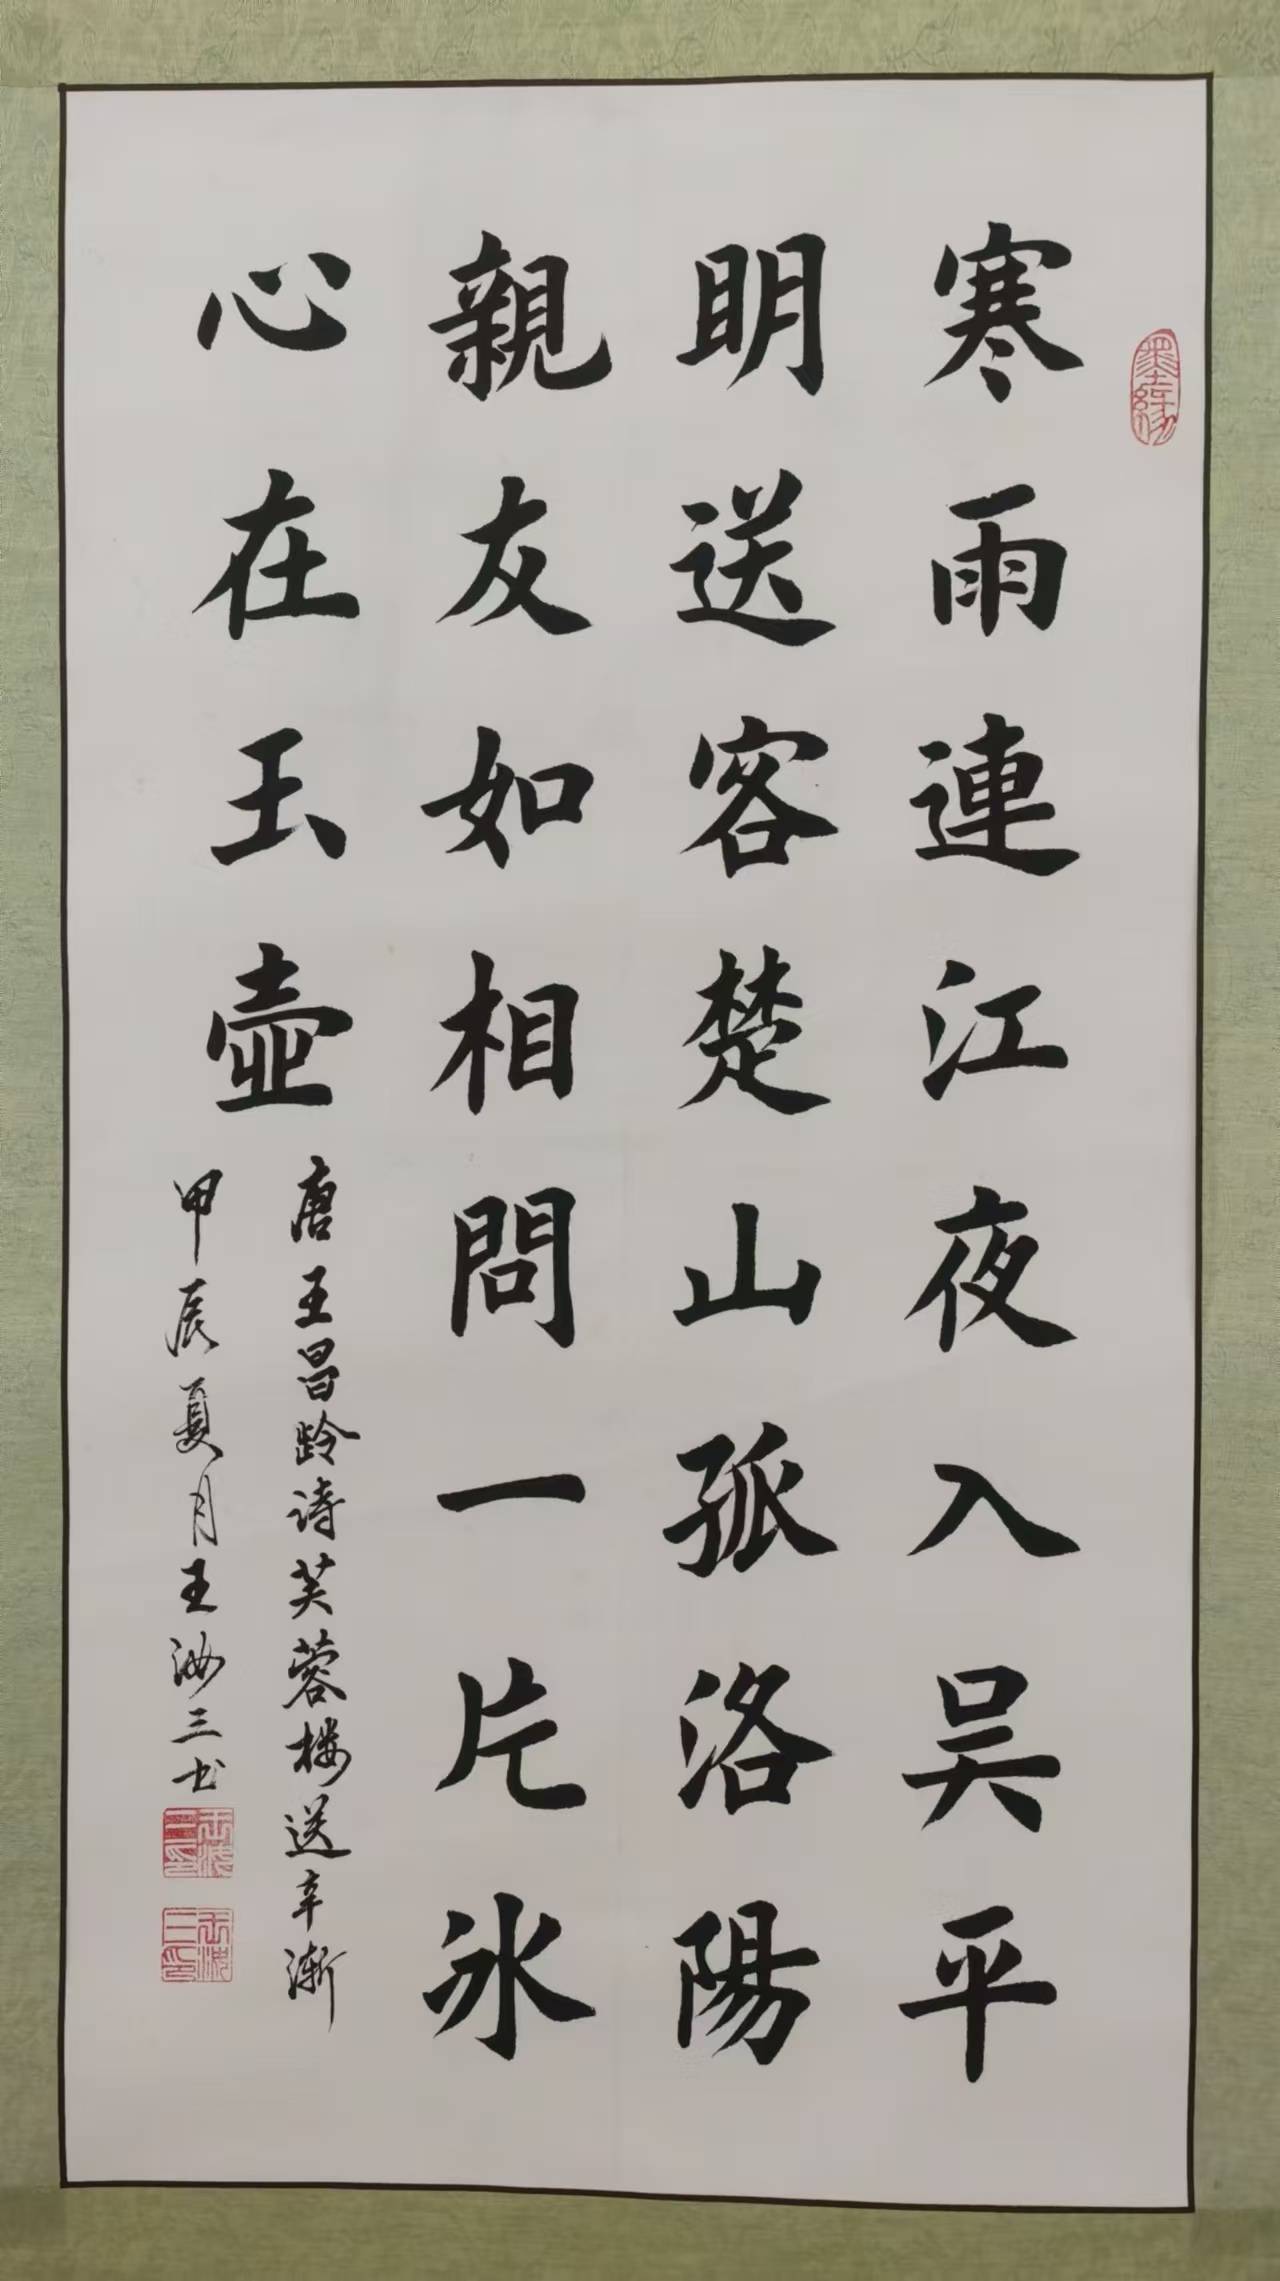 寒雨連江夜入吴平
明送客楚山孤洛陽
親友如相問一片冰
心在玉壺
唐王昌龄诗芙蓉楼送辛渐
甲辰夏月王汝三书
墨缘